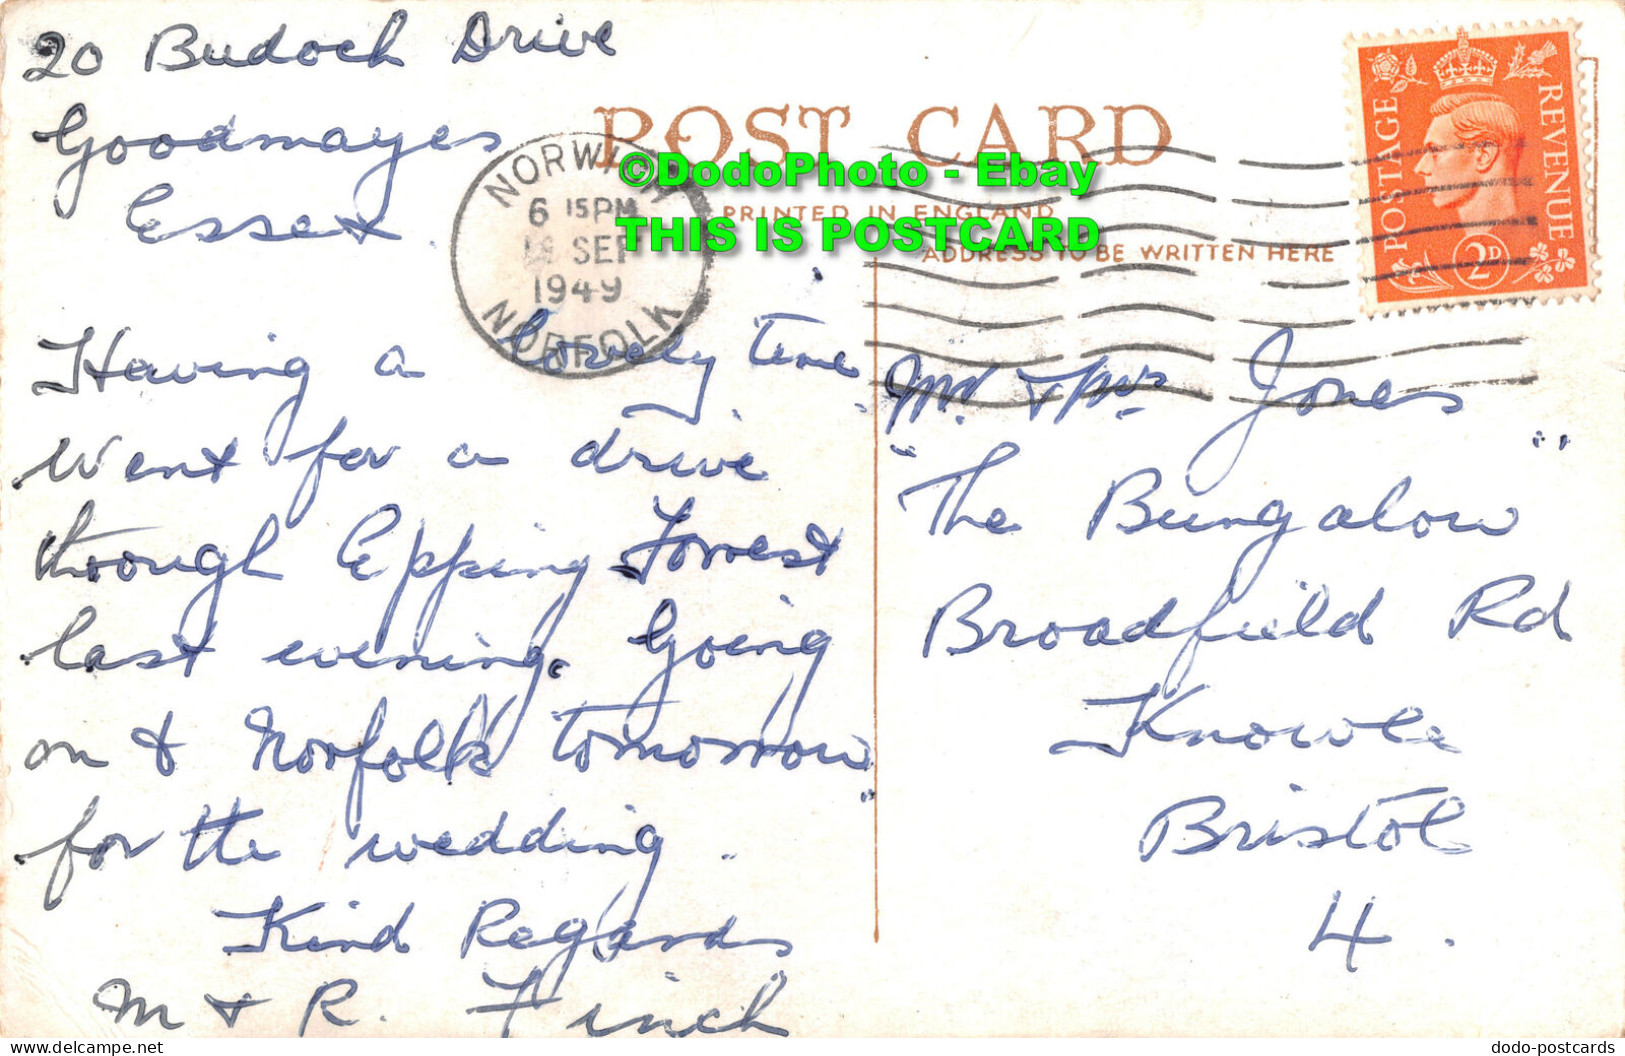 20 Budoch Drive
Goodmayes
Essex.
POST CARD
PRINTED IN ENGLAND
ADDRESS TO BE WRITTEN HERE
NORWICH
6 15PM
SEP
1949
NORFOLK
POSTAGE
REVENUE
2D
©DodoPhoto - Ebay
THIS IS POSTCARD
Having a lovely time
Went for a drive
through Epping Forrest
last evening. Going
on to Norfolk tomorrow
for the wedding.
Kind Regards
M & R. Finch
Mr. & Mrs Jones
"The Bungalow"
Broadfield Rd
Knowle
Bristol
4.
www.delcampe.net
dodo-postcards